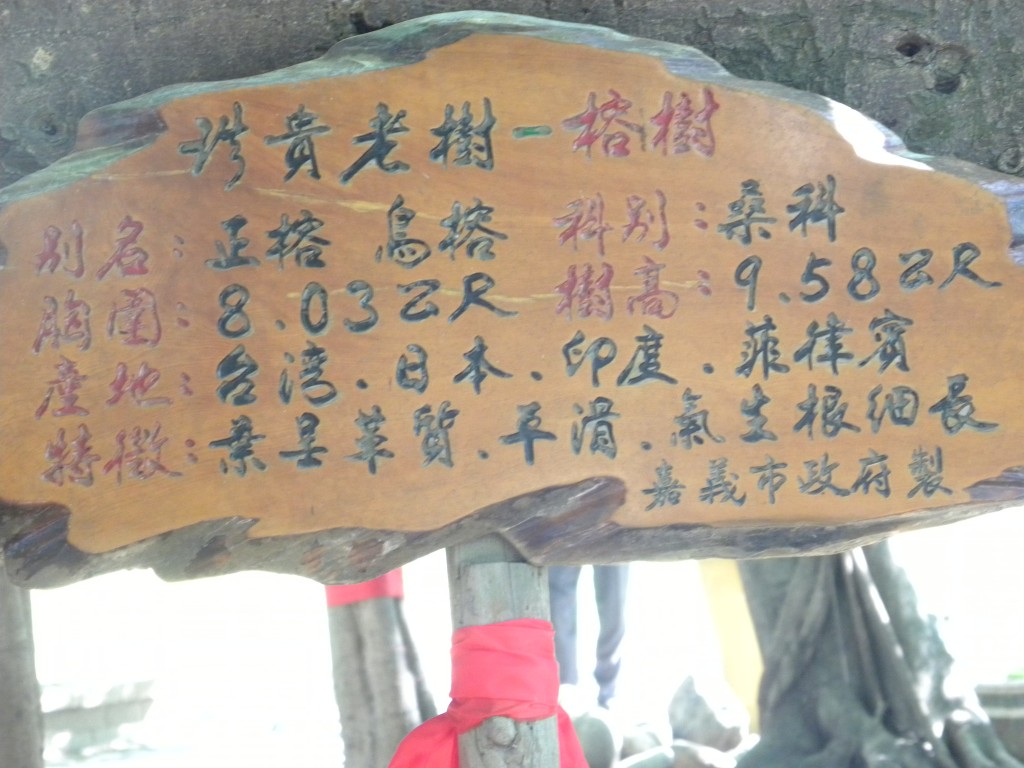 珍貴老樹-榕樹
別名:正榕 鳥榕 科別:桑科
胸圍:8.03公尺 樹高:9.58公尺
產地:台湾.日本.印度.菲律賓
特徵:葉呈革質.平滑.氣生根細長
嘉義市政府製